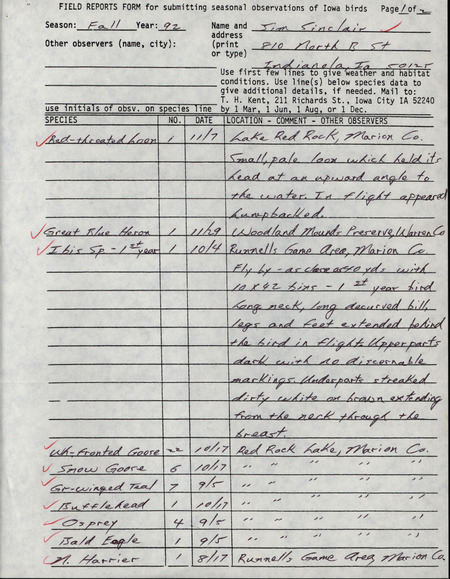 FIELD REPORTS FORM for submitting seasonal observations of Iowa birds Page 1 of 2
Season: Fall Year: 92 Name and Jim Sinclair
address
Other observers (name, city): (print 810 North B St
or type)
Indianola, Ia 50125
Use first few lines to give weather and habitat
conditions. Use line(s) below species data to
give additional details, if needed. Mail to:
T. H. Kent, 211 Richards St., Iowa City IA 52240
use initials of obsv. on species line by 1 Mar, 1 Jun, 1 Aug, or 1 Dec.
SPECIES NO. DATE LOCATION - COMMENT - OTHER OBSERVERS
Red-throated Loon 1 11/7 Lake Red Rock, Marion Co.
Small, pale loon which held its
head at an upward angle to
the water. In flight appeared
humpbacked.
Great Blue Heron 1 11/29 Woodland Mounds Preserve, Warren Co
Ibis Sp - 1st year 1 10/4 Runnells Game Area, Marion Co.
Fly by - as close as 40 yds with
10 x 42 bins - 1st year bird
Long neck, long decurved bill,
legs and feet extended behind
the bird in flight. Upperparts
dark with no discernable
markings. Underparts streaked
dirty white on brown extending
from the neck through the
breast.
Wh-fronted Goose 22 10/17 Red Rock Lake, Marion Co.
Snow Goose 6 10/17 " " " "
Gr-winged Teal 7 9/5 " " " "
Bufflehead 1 10/17 " " " "
Osprey 4 9/5 " " " "
Bald Eagle 1 9/5 " " " "
N. Harrier 1 8/17 Runnells Game Area, Marion Co.